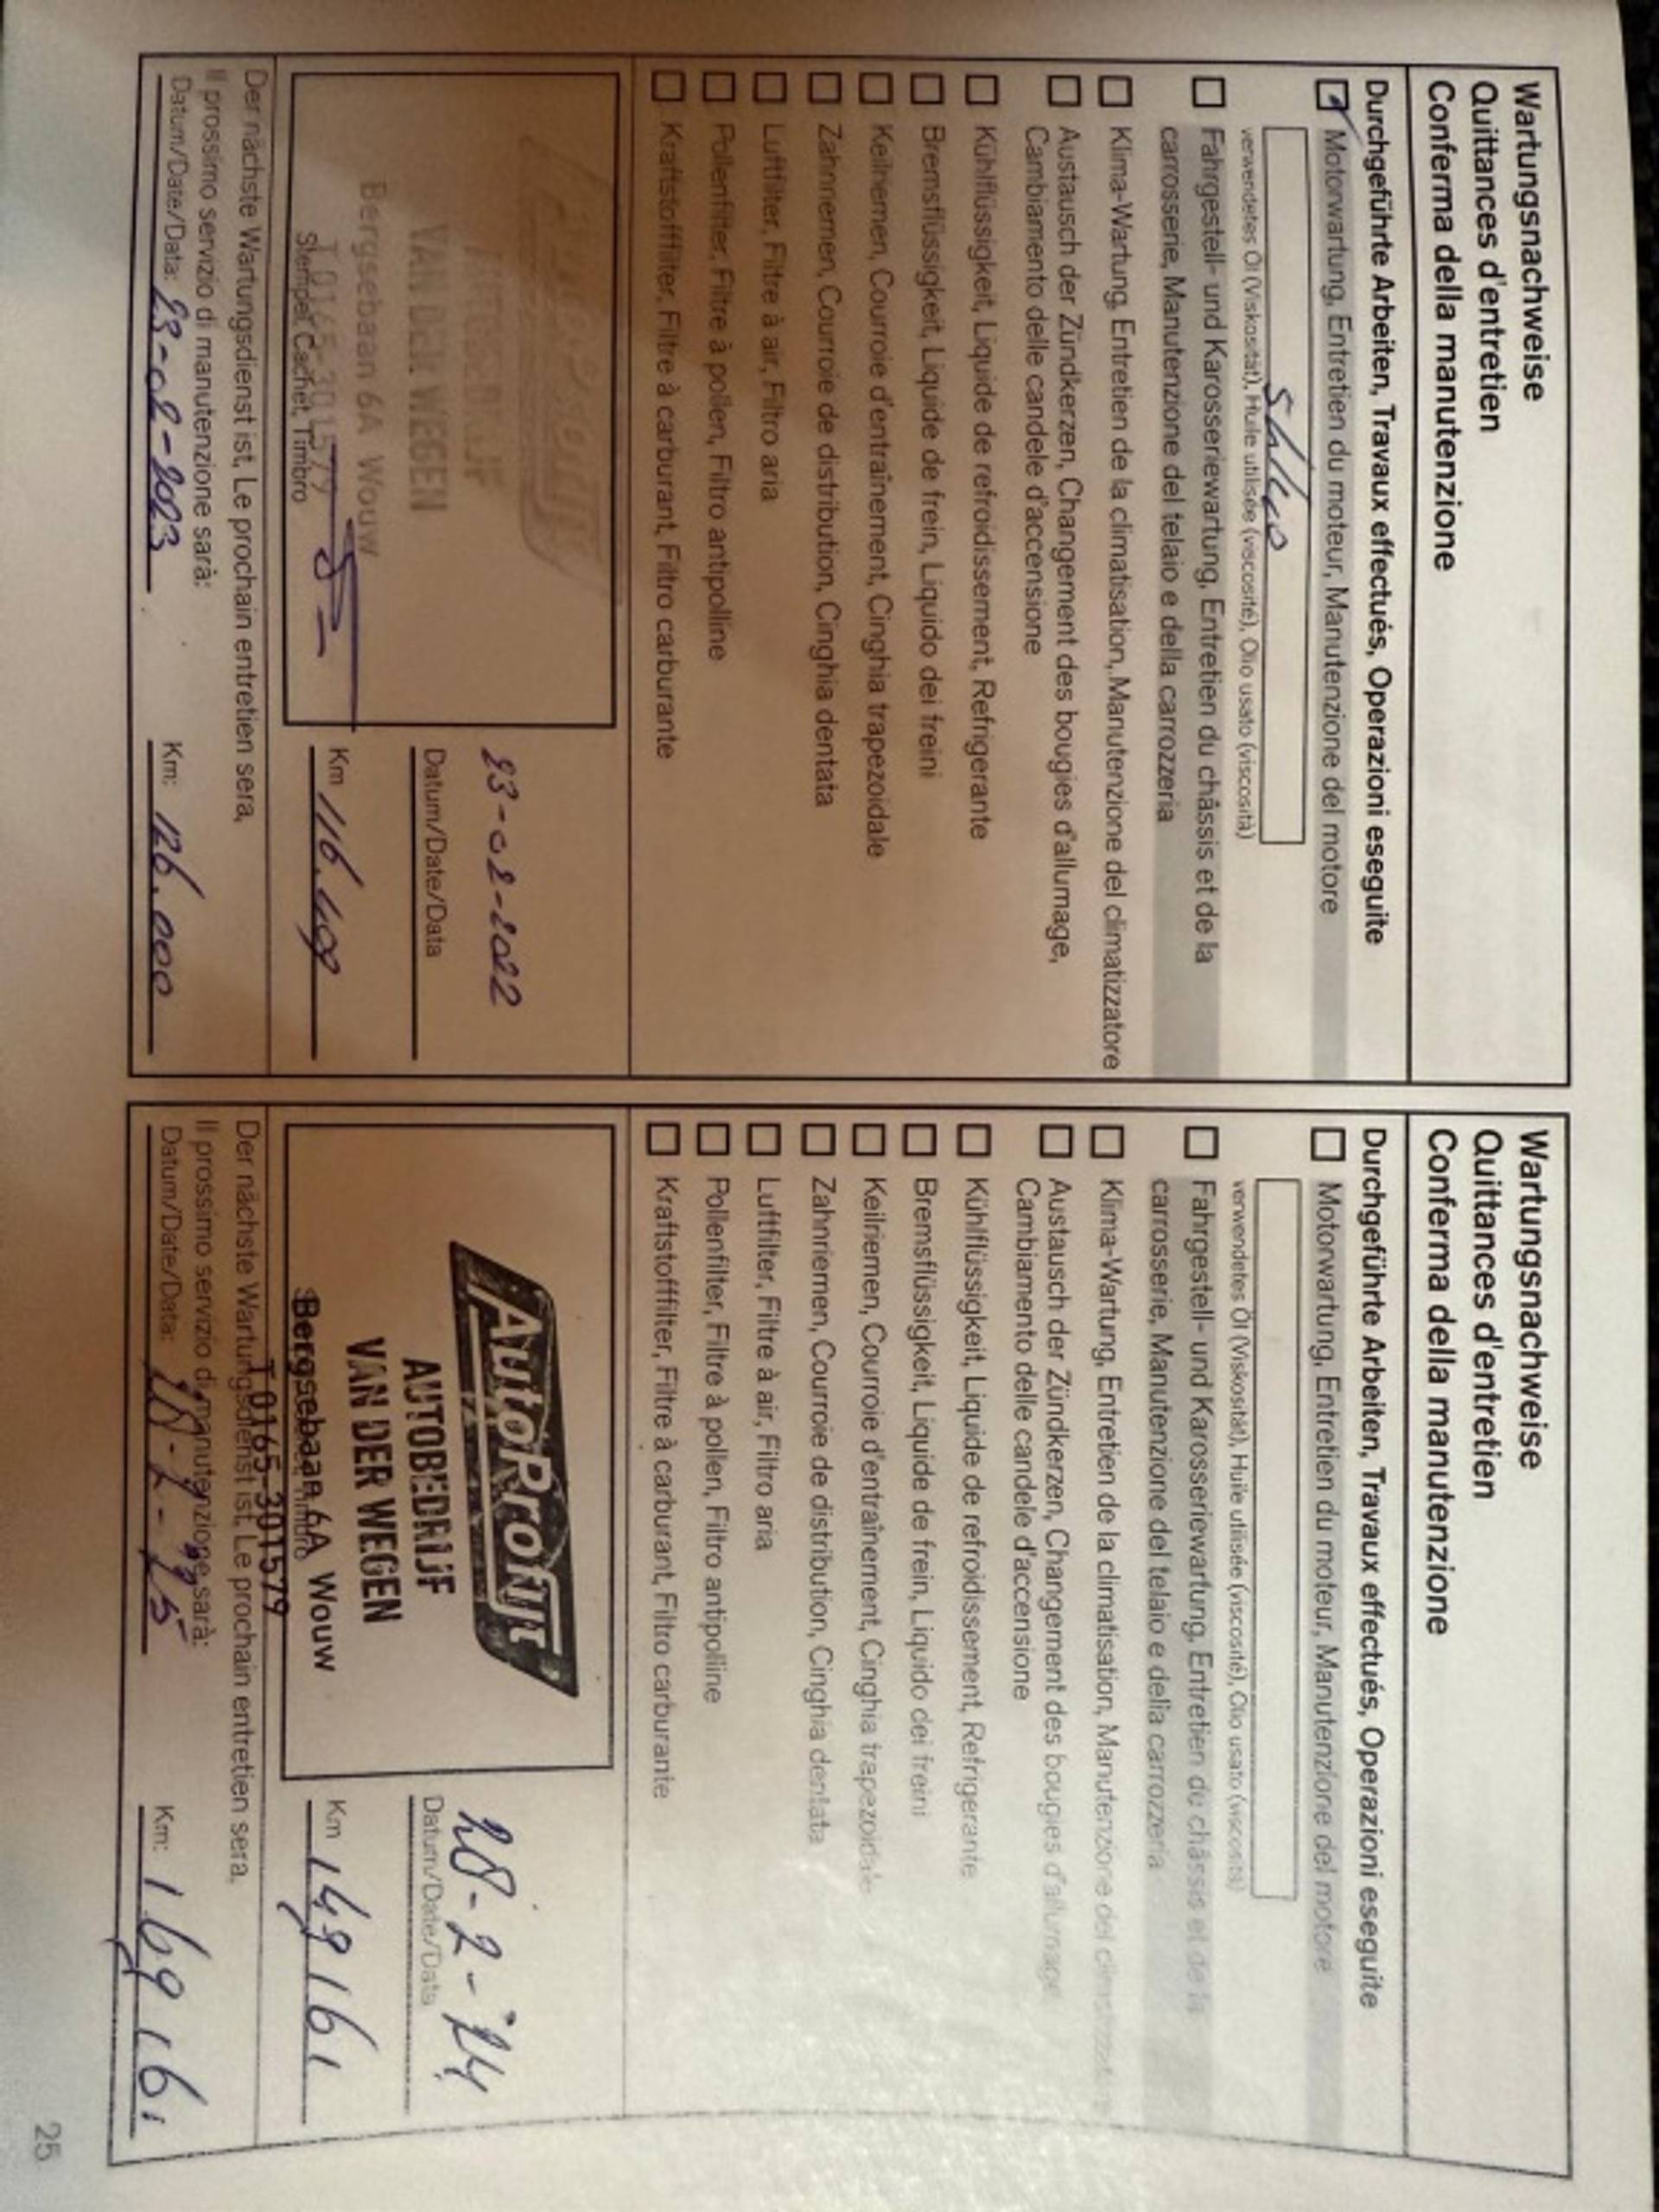 Wartungsnachweise
Quittances d'entretien
Conferma della manutenzione
Durchgeführte Arbeiten, Travaux effectués, Operazioni eseguite
Motorwartung, Entretien du moteur, Manutenzione del motore
verwendetes Öl (Viskosität), Huile utilisée (viscosité), Olio usato (viscosità)
Fahrgestell- und Karosseriewartung, Entretien du châssis et de la
carrosserie, Manutenzione del telaio e della carrozzeria
Klima-Wartung, Entretien de la climatisation, Manutenzione del climatizzatore
Austausch der Zündkerzen, Changement des bougies d'allumage,
Cambiamento delle candele d'accensione
Kühlflüssigkeit, Liquide de refroidissement, Refrigerante
Bremsflüssigkeit, Liquide de frein, Liquido dei freini
Keilriemen, Courroie d'entraînement, Cinghia trapezoidale
Zahnriemen, Courroie de distribution, Cinghia dentata
Luftfilter, Filtre à air, Filtro aria
Pollenfilter, Filtre à pollen, Filtro antipolline
Kraftstofffilter, Filtre à carburant, Filtro carburante
VAN DER WEGEN
Bergsebaan 6A Wouw
T 0165-301579
Stempel, Cachet, Timbro
23-02-2022
Datum/Date/Data
Km 116.409
Der nächste Wartungsdienst ist, Le prochain entretien sera,
Il prossimo servizio di manutenzione sarà:
Datum/Date/Data: 23-02-2023 Km: 126.000
Wartungsnachweise
Quittances d'entretien
Conferma della manutenzione
Durchgeführte Arbeiten, Travaux effectués, Operazioni eseguite
Motorwartung, Entretien du moteur, Manutenzione del motore
verwendetes Öl (Viskosität), Huile utilisée (viscosité), Olio usato (viscosità)
Fahrgestell- und Karosseriewartung, Entretien du châssis et de la
carrosserie, Manutenzione del telaio e della carrozzeria
Klima-Wartung, Entretien de la climatisation, Manutenzione del climatizzatore
Austausch der Zündkerzen, Changement des bougies d'allumage,
Cambiamento delle candele d'accensione
Kühlflüssigkeit, Liquide de refroidissement, Refrigerante
Bremsflüssigkeit, Liquide de frein, Liquido dei freini
Keilriemen, Courroie d'entraînement, Cinghia trapezoidale
Zahnriemen, Courroie de distribution, Cinghia dentata
Luftfilter, Filtre à air, Filtro aria
Pollenfilter, Filtre à pollen, Filtro antipolline
Kraftstofffilter, Filtre à carburant, Filtro carburante
AutoProfijt
AUTOBEDRIJF
VAN DER WEGEN
Bergsebaan 6A Wouw
T 0165-301579
28-2-'24
Datum/Date/Data
Km 149161
Der nächste Wartungsdienst ist, Le prochain entretien sera,
Il prossimo servizio di manutenzione sarà:
Datum/Date/Data: Km: 169161
25